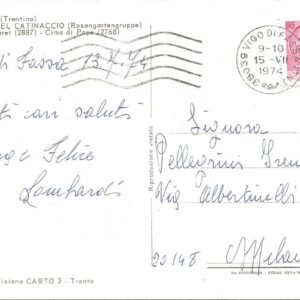 (Trentino)
EL CATINACCIO (Rosengartengruppe)
aret (2887) - Cima di Pope (2768)
di Fassa 13.7.74
ti cari saluti
Felice
Lombardi
izione CARTO 3 - Trento
Riproduzione vietata
38039 VIGO DI F
9-10
15-VII
1974
Signora
Pellegrini
Via Albertinelli
20148 Milano